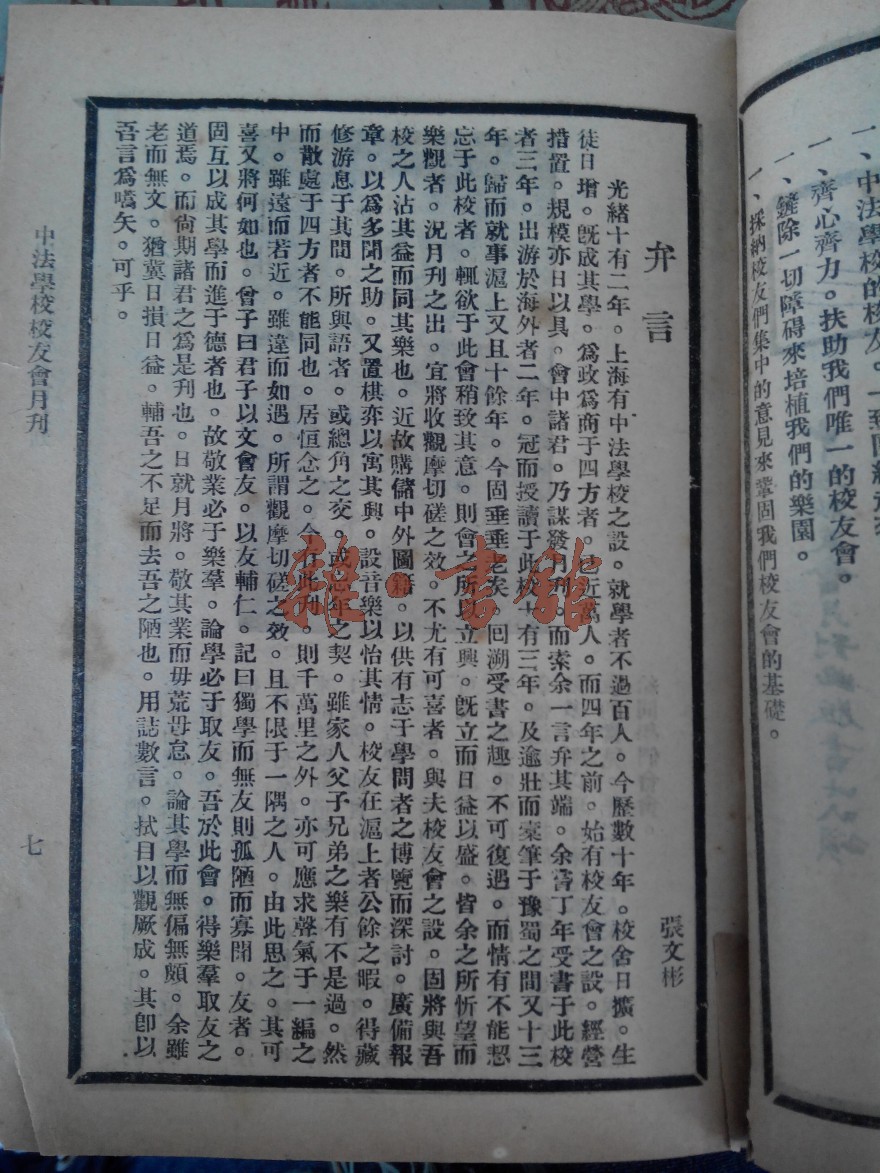 一、中法學校的校友。一致團結
一、齊心齊力。扶助我們唯一的校友會。
一、鏟除一切障碍來培植我們的樂園。
一、採納校友們集中的意見來鞏固我們校友會的基礎。
弁言
張文彬
光緒十有二年。上海有中法學校之設。就學者不過百人。今歷數十年。校舍日擴。生
徒日增。旣成其學。爲政爲商于四方者。已近萬人。而四年之前。始有校友會之設。經營
措置。規模亦日以具。會中諸君。乃謀發月刊。而索余一言弁其端。余蒼丁年受書于此校
者三年。出游於海外者二年。冠而授讀于此校十有三年。及逾壯而橐筆于豫蜀之間又十三
年。歸而就事滬上又且十餘年。今固垂垂老矣。回溯受書之趣。不可復遇。而情有不能恝
忘于此校者。輒欲于此會稍致其意。則會之所以立興。旣立而日益以盛。皆余之所忻望而
樂觀者。況月刊之出。宜將收觀摩切磋之效。不尤有可喜者。與夫校友會之設。固將與吾
校之人沾其益而同其樂也。近故購儲中外圖籍。以供有志于學問者之博覽而深討。廣備報
章。以爲多聞之助。又置棋弈以寓其興。設音樂以怡其情。校友在滬上者公餘之暇。得藏
修游息于其間。所與語者。或總角之交。或忘年之契。雖家人父子兄弟之樂有不是過。然
而散處于四方者不能同也。居恒念之。今有此刊。則千萬里之外。亦可應求聲氣于一編之
中。雖遠而若近。雖違而如遇。所謂觀摩切磋之效。且不限于一隅之人。由此思之。其可
喜又將何如也。曾子曰君子以文會友。以友輔仁。記曰獨學而無友則孤陋而寡聞。友者。
固互以成其學而進于德者也。故敬業必于樂羣。論學必于取友。吾於此會。得樂羣取友之
道焉。而尙期諸君之爲是刋也。日就月將。敬其業而毋荒毋怠。論其學而無偏無頗。余雖
老而無文。猶冀日損日益。輔吾之不足而去吾之陋也。用誌數言。拭目以觀厥成。其卽以
吾言爲嚆矢。可乎。
中法學校校友會月刊
七
雜·書館